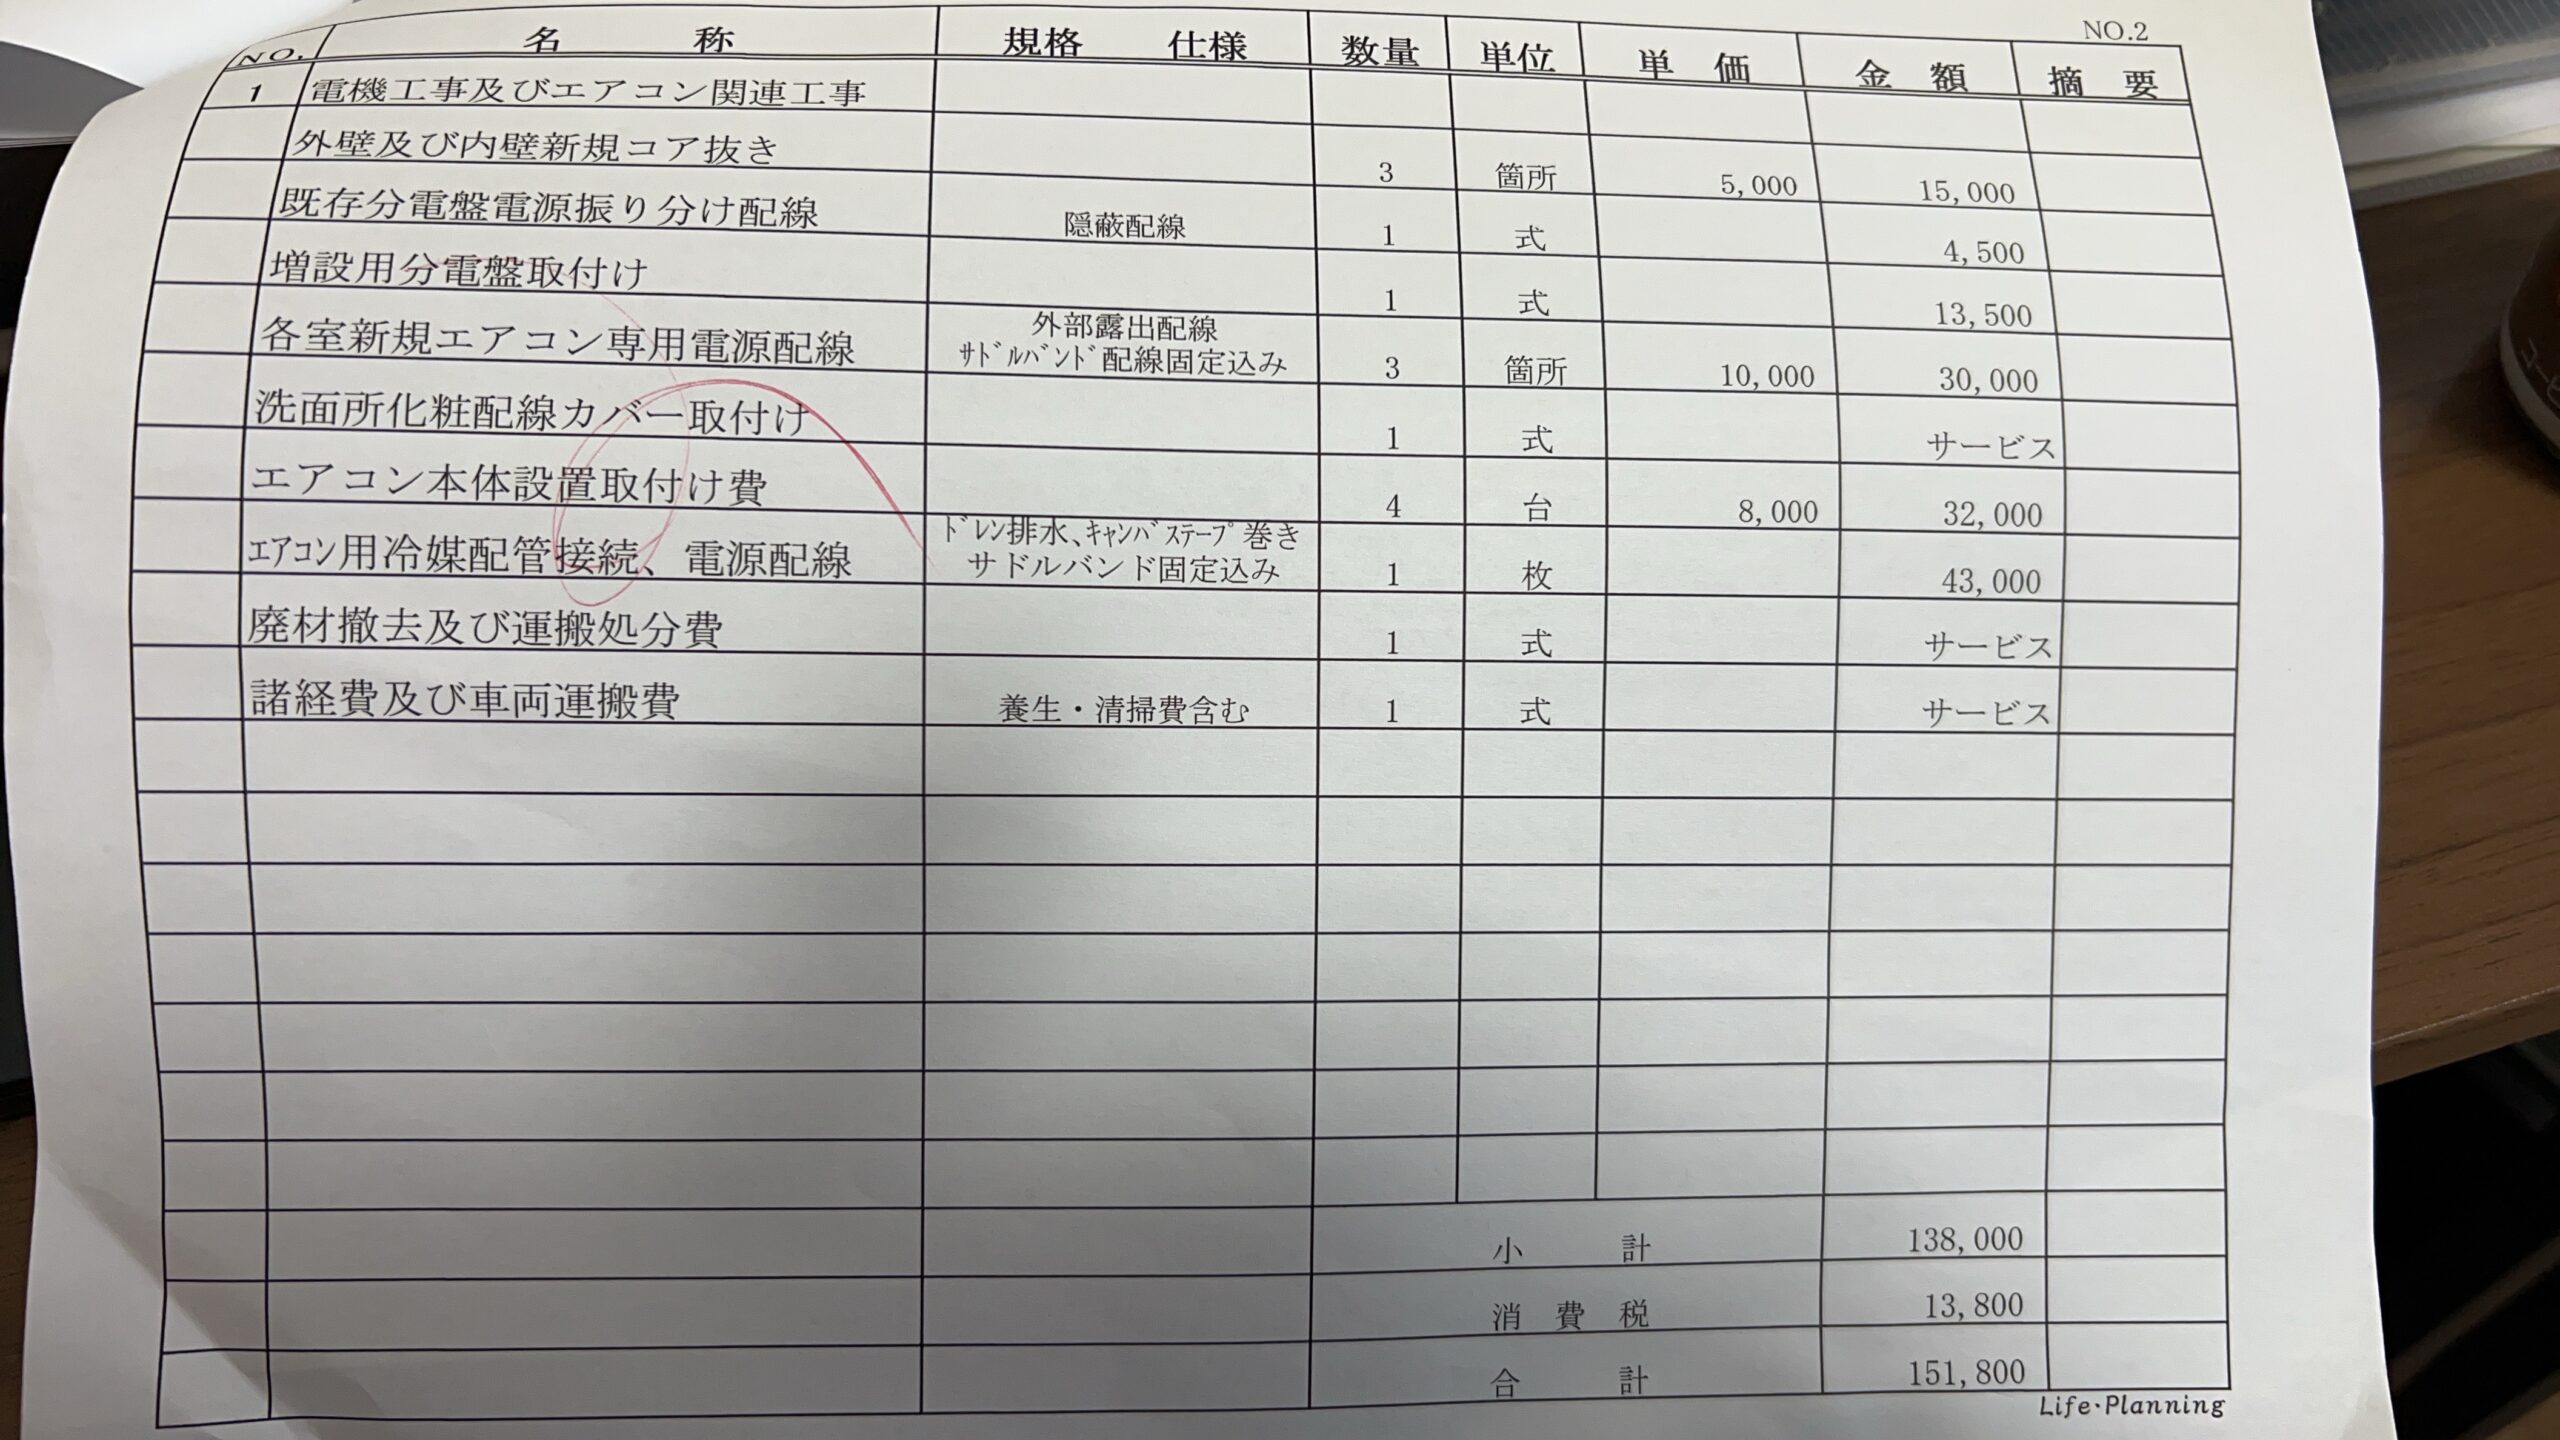 NO.2
NO. 名 称 規格 仕様 数量 単位 単 価 金 額 摘 要
1 電機工事及びエアコン関連工事
外壁及び内壁新規コア抜き 3 箇所 5,000 15,000
既存分電盤電源振り分け配線 隠蔽配線 1 式 4,500
増設用分電盤取付け 1 式 13,500
各室新規エアコン専用電源配線 外部露出配線 3 箇所 10,000 30,000
ｻﾄﾞﾙﾊﾞﾝﾄﾞ配線固定込み
洗面所化粧配線カバー取付け 1 式 サービス
エアコン本体設置取付け費 4 台 8,000 32,000
ｴｱｺﾝ用冷媒配管接続、電源配線 ﾄﾞﾚﾝ排水､ｷｬﾝﾊﾞｽﾃｰﾌﾟ巻き 1 枚 43,000
サドルバンド固定込み
廃材撤去及び運搬処分費 1 式 サービス
諸経費及び車両運搬費 養生・清掃費含む 1 式 サービス
小 計 138,000
消 費 税 13,800
合 計 151,800
Life･Planning